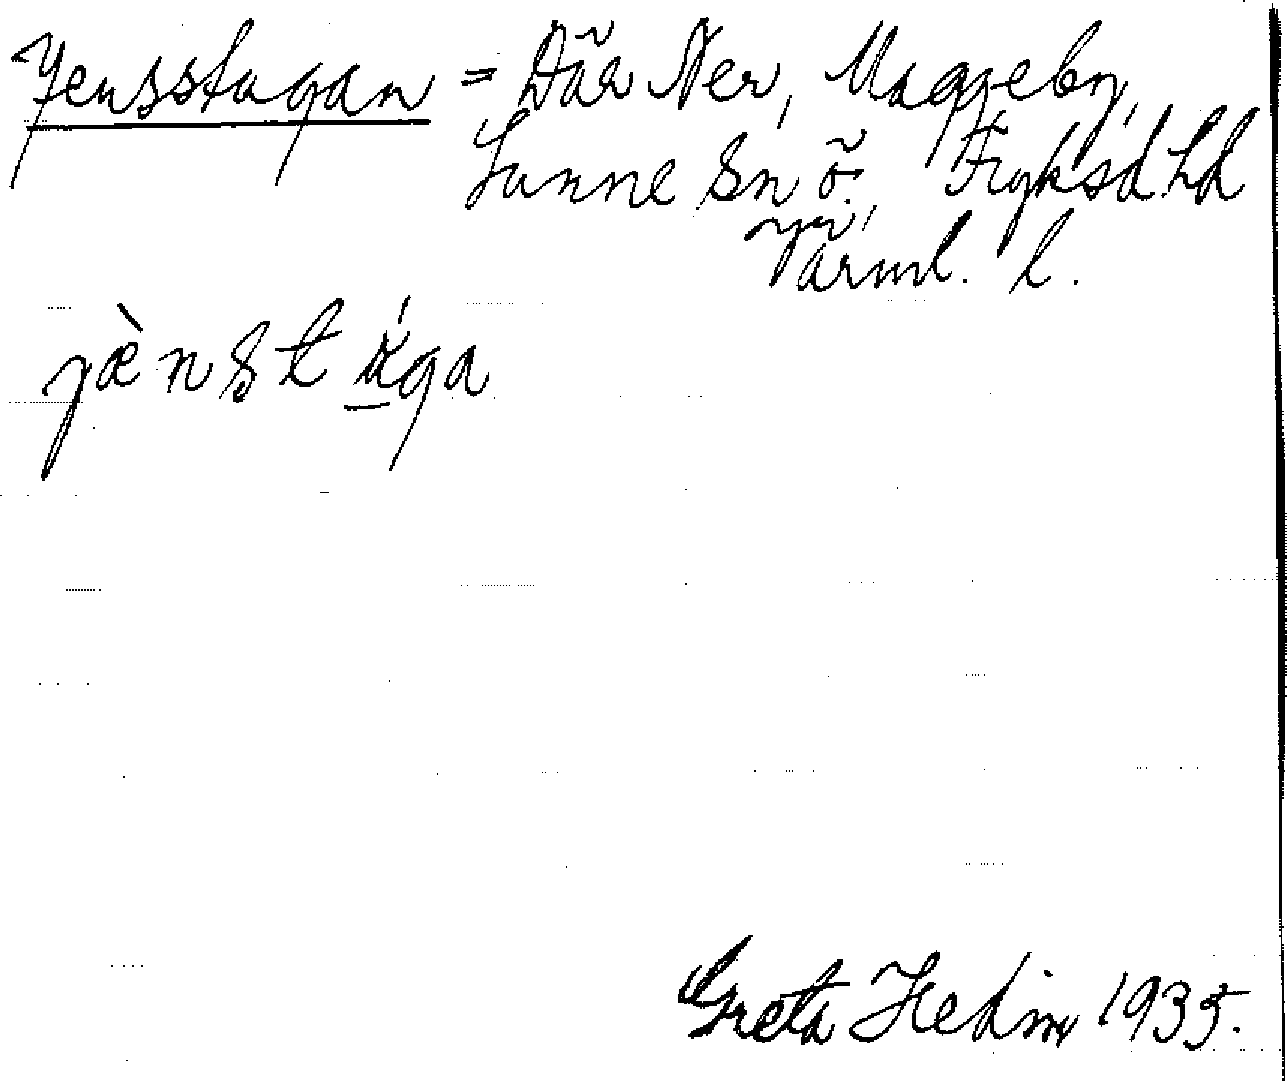 Jensstugan = Där Ner, Maggeby,
Sunne sn ö., Fryksd hd
Värml. l.
jènst ú̲ga
Greta Hedin 1935.